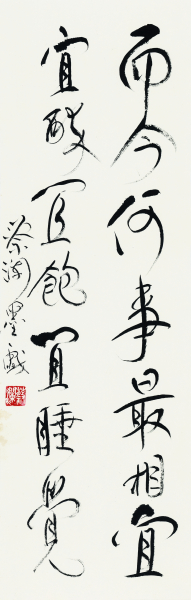 而今何事最相宜
宜醉宜飽宜睡覺
蔡瀾墨戲